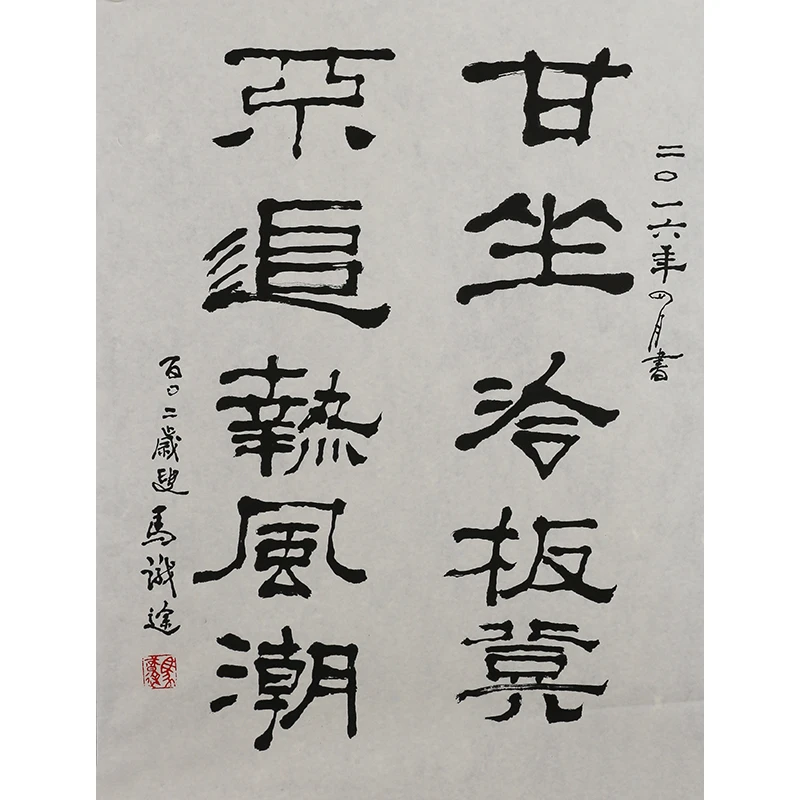 二〇一六年四月書
甘坐冷板凳
不追熱風潮
百〇二歲叟馬識途